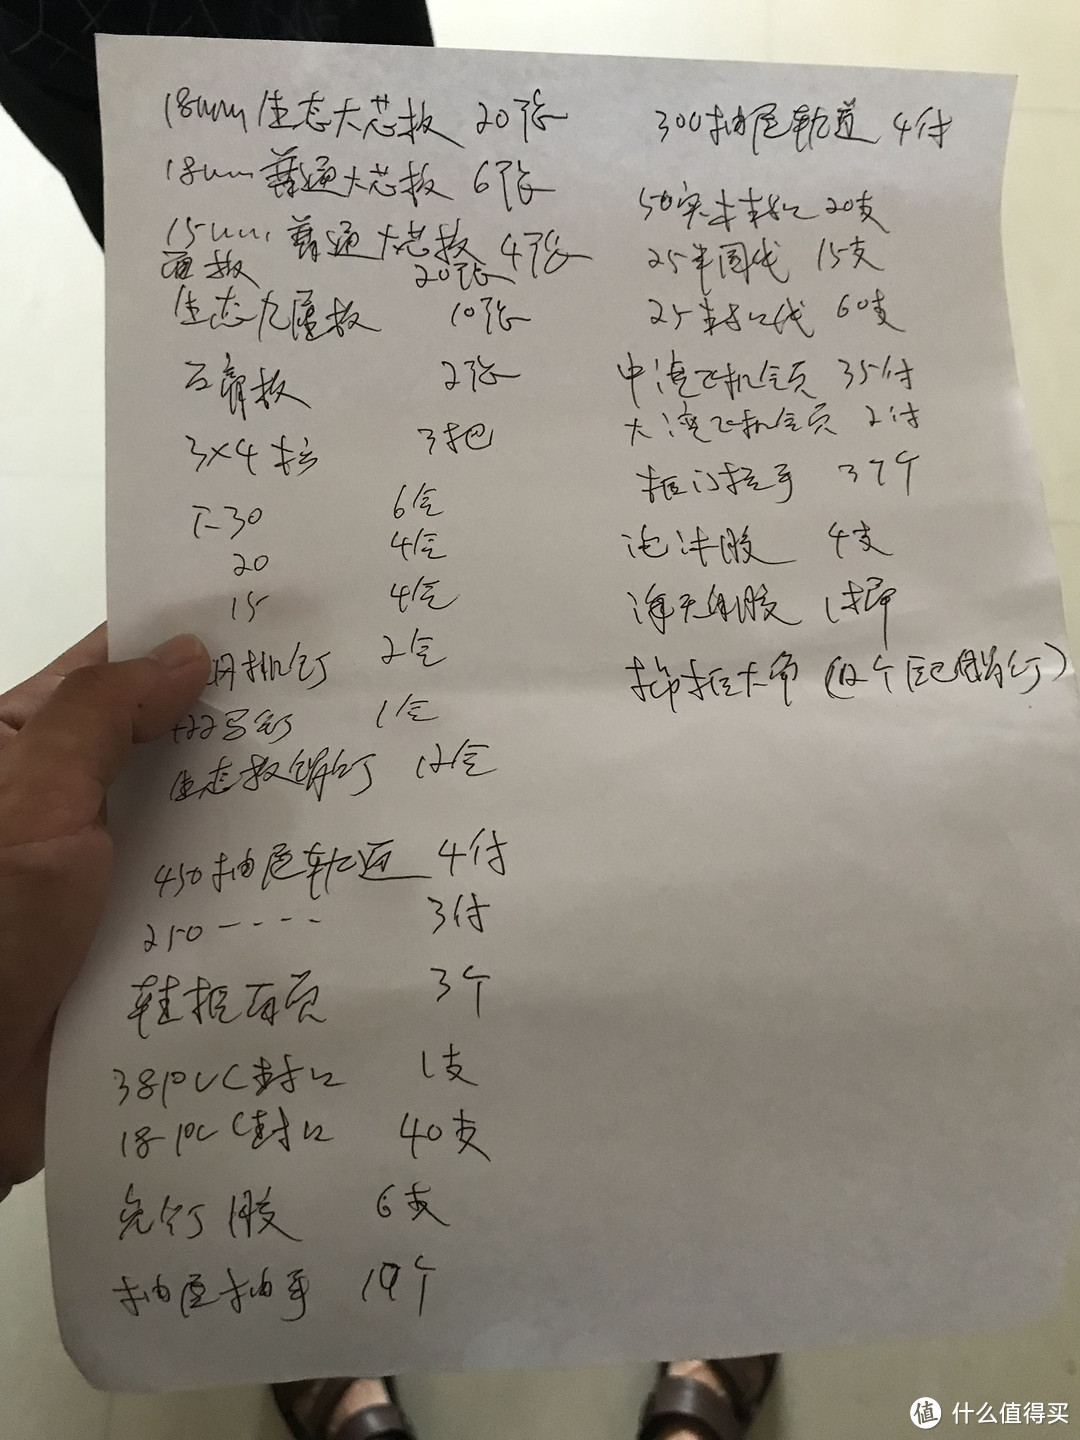 18mm 生态大芯板 20张
18mm 普通大芯板 6张
15mm 普通大芯板 4张
面板 20张
生态九厘板 10张
石膏板 2张
3×4 3把
T-30 6盒
20 4盒
15 4盒
钉 2盒
钉 1盒
生态板钉 12盒
450抽屉轨道 4付
250 ---- 3付
鞋柜百页 3个
38PVC封口 1支
18PVC封口 40支
免钉胶 6支
抽屉抽手 19个
300抽屉轨道 4付
50实木封口 20支
25半圆线 15支
25封口线 60支
中湾飞机合页 35付
大湾飞机合页 2付
柜门拉手 37个
泡沫胶 4支
胶 1
值 什么值得买